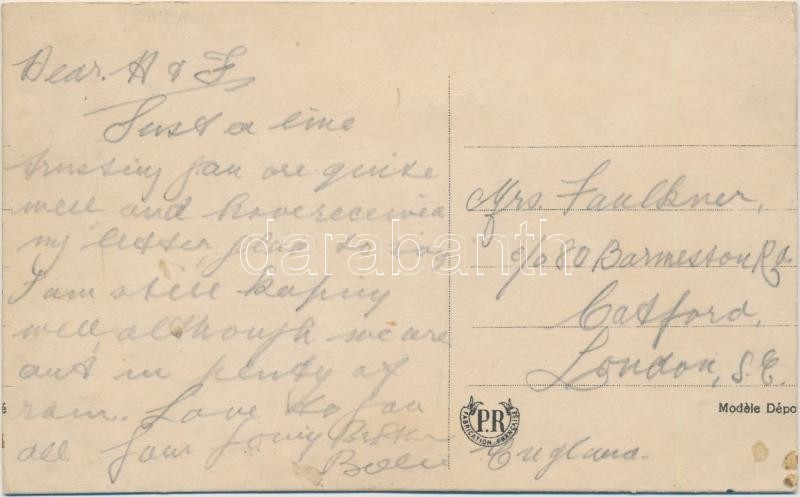 Dear. H & F
Just a line
trusting you are quite
well and have received
my letter, glad to say
I am still keping
well, although we are
out in plenty of
rain. Love to you
all your loving Brother
Mrs. Faulkner,
c/o 80 Barmeston Rd.
Catford,
London, S.E.
England.
P.R
FABRICATION FRANÇAISE
Modèle Dépo
é
darabanth